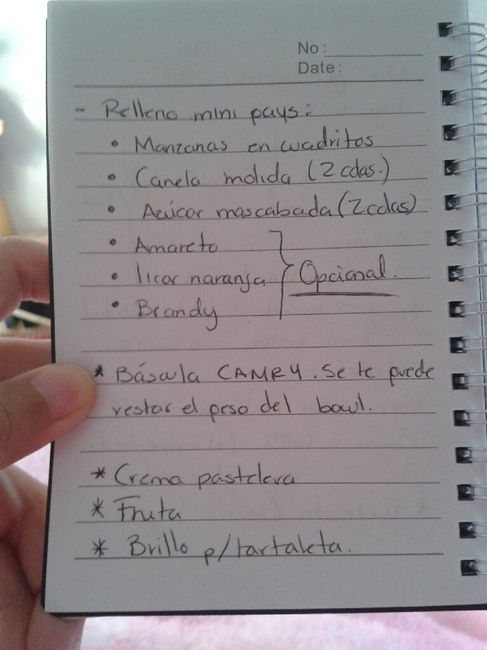 No:
Date:
- Relleno mini pays:
• Manzanas en cuadritos
• Canela molida (2 cdas.)
• Azúcar mascabada (2 cdas)
• Amareto
• licor naranja
Opcional.
• Brandy
* Báscula CAMRY. Se te puede
restar el peso del bowl.
* Crema pastelera
* Fruta
* Brillo p/tartaleta.